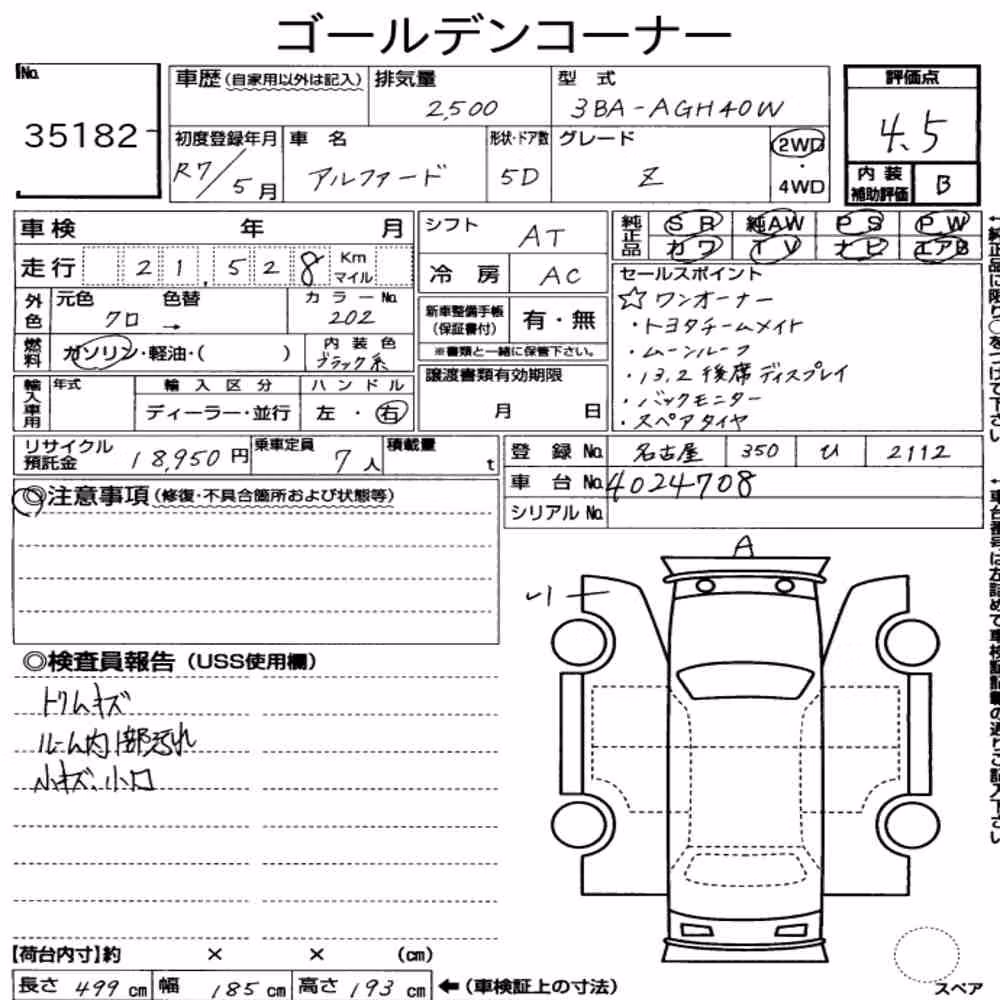 ゴールデンコーナー
No. 35182
車歴 (自家用以外は記入) 排気量 2,500 型式 3BA-AGH40W
評価点 4.5
初度登録年月 R7/5月 車名 アルファード 形状・ドア数 5D グレード Z 2WD・4WD
内装補助評価 B
車検 年 月 シフト AT
純正品 SR 純AW PS PW
カワ TV ナビ エアB
走行 21,528 Km マイル
冷房 AC
外色 元色 クロ 色替 → カラーNo. 202
新車整備手帳(保証書付) 有・無
※書類と一緒に保管下さい。
燃料 ガソリン・軽油・( ) 内装色 ブラック系
輸入車用 年式 輸入区分 ディーラー・並行 ハンドル 左・右
譲渡書類有効期限 月 日
セールスポイント
☆ワンオーナー
・トヨタチームメイト
・ムーンルーフ
・13.2後席ディスプレイ
・バックモニター
・スペアタイヤ
リサイクル預託金 18,950円 乗車定員 7人 積載量 t
登録No. 名古屋 350 ひ 2112
車台No. 4024708
シリアルNo.
◎注意事項 (修復・不具合箇所および状態等)
◎検査員報告 (USS使用欄)
トリムキズ
ルーム内1部汚れ
小キズ、小凹
A
【荷台内寸】約 × × (cm)
長さ 499 cm 幅 185 cm 高さ 193 cm ←(車検証上の寸法)
スペア
←純正品に限り○をつけて下さい
←車台番号は左詰めで車検証記載の通りご記入下さい